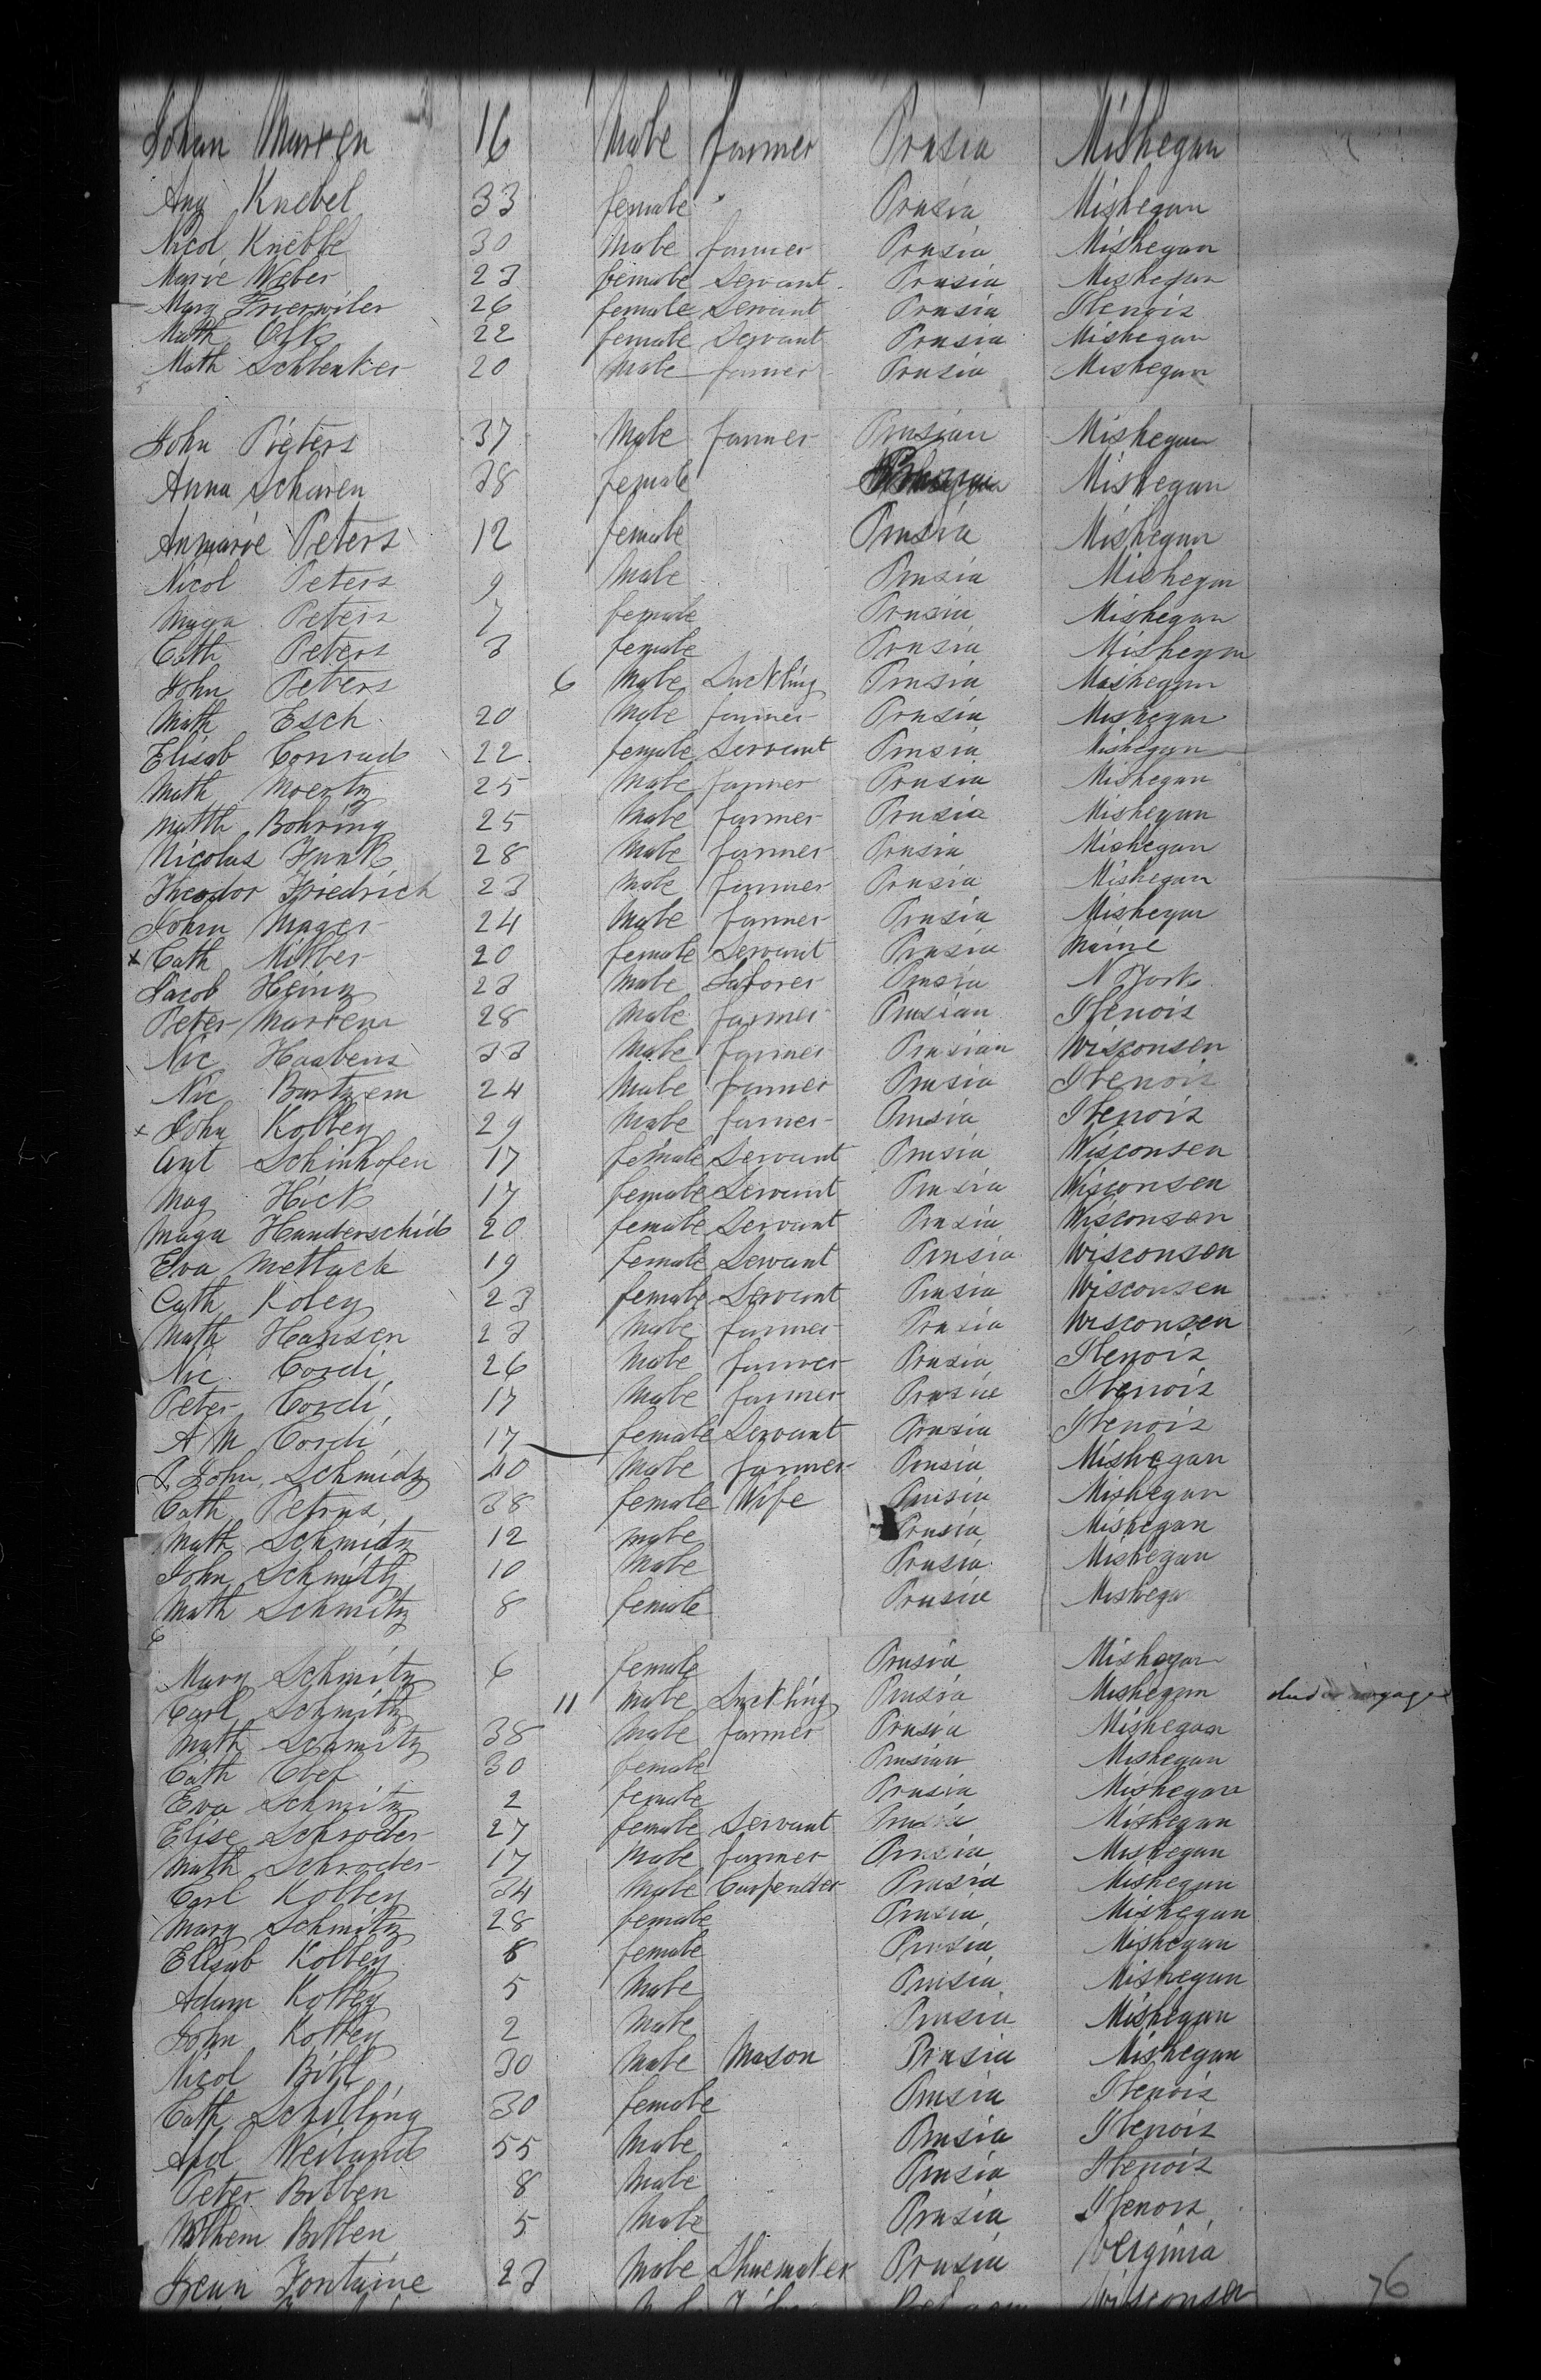 Johan Marxen 16 Male farmer Prusia Mishegan
Ang Knebel 33 female " Prusia Mishegan
Nicol Knebbe 30 Male farmer Prusia Mishegan
Marie Weber 23 female Servant Prusia Mishegan
Marg Frierwiler 26 female Servant Prusia Ilenois
Math 22 female Servant Prusia Mishegan
Math Schlenker 20 Male farmer Prusia Mishegan
5
John Pieters 37 Male farmer Prusian Mishegan
Anna Scharen 38 female Mishegan
Anmarie Peters 12 female Prusia Mishegan
Nicol Peters 9 Male Prusia Mishegan
Maga Peters 7 female Prusia Mishegan
Cath Peters 3 female Prusia Mishegan
John Peters 6 Male Suckling Prusia Mashegan
Math Esch 20 Male farmer Prusia Mishegan
Elisab Conrad 22 female Servant Prusia Mishegan
Math Moertz 25 Male farmer Prusia Mishegan
Matth Bohring 25 Male farmer Prusia Mishegan
Nicolas Funk 28 Male farmer Prusia Mishegan
Theodor Friedrich 23 Male farmer Prusia Mishegan
John Mayer 24 Male farmer Prusia Mishegan
x Cath Miller 20 female Servant Prusia Maine
Jacob Heinz 23 Male Laborer Prusia N York
Peter Marxem 28 Male farmer Prusian Ilenois
Nic Haabens 33 Male farmer Prusian Wisconsen
Nic Bartzem 24 Male farmer Prusia Ilenois
x John Kolbey 29 Male farmer Prusia Ilenois
Ant Schinhofen 17 female Servant Prusia Wisconsen
Mag Hick 17 female Servant Prusia Wisconsen
Maga Hunderschid 20 female Servant Prusia Wisconsen
Eva Mettack 19 female Servant Prusia Wisconsen
Cath Koley 23 female Servant Prusia Wisconsen
Math Hansen 23 Male farmer Prusia Wisconsen
Nic Cordi 26 Male farmer Prusia Ilenois
Peter Cordi 17 Male farmer Prusie Ilenois
A M Cordi 17 female Servant Prusia Ilenois
P John Schmidz 40 Male farmer Prusia Mishegan
Cath Petras 38 female Wife Prusia Mishegan
Math Schmidz 12 male Prusia Mishegan
John Schmitz 10 Male Prusia Mishegan
Math Schmitz 8 female Prusie Mishega
6
Mary Schmitz 6 female Prusia Mishegan
Carl Schmitz 11 Male Suckling Prusia Mishegan
Math Schmitz 38 Male farmer Prusia Mishegan
Cath 30 female Prusian Mishegan
Eva Schmitz 2 female Prusia Mishegan
Elise Schroder 27 female Servant Prusia Mishegan
Math Schroder 17 Male farmer Prusia Mishegan
Carl Kolbey 34 Male Carpender Prusia Mishegan
Mary Schmitz 28 female Prusia Mishegan
Elisab Kolbey 8 female Prusia Mishegan
Adam Kolbey 5 Male Prusia Mishegan
John Kolbey 2 Male Prusia Mishegan
Nicol Bill 30 Male Mason Prusia Mishegan
Cath Schilling 30 female Prusia Ilenois
Apol Weiland 55 Male Prusia Ilenois
Peter Billen 8 Male Prusia Ilenois
Wilhem Billen 5 Male Prusia Ilenois
Jean Fontaine 23 Male Shuemaker Prusia Verginia
Wisconsen
76